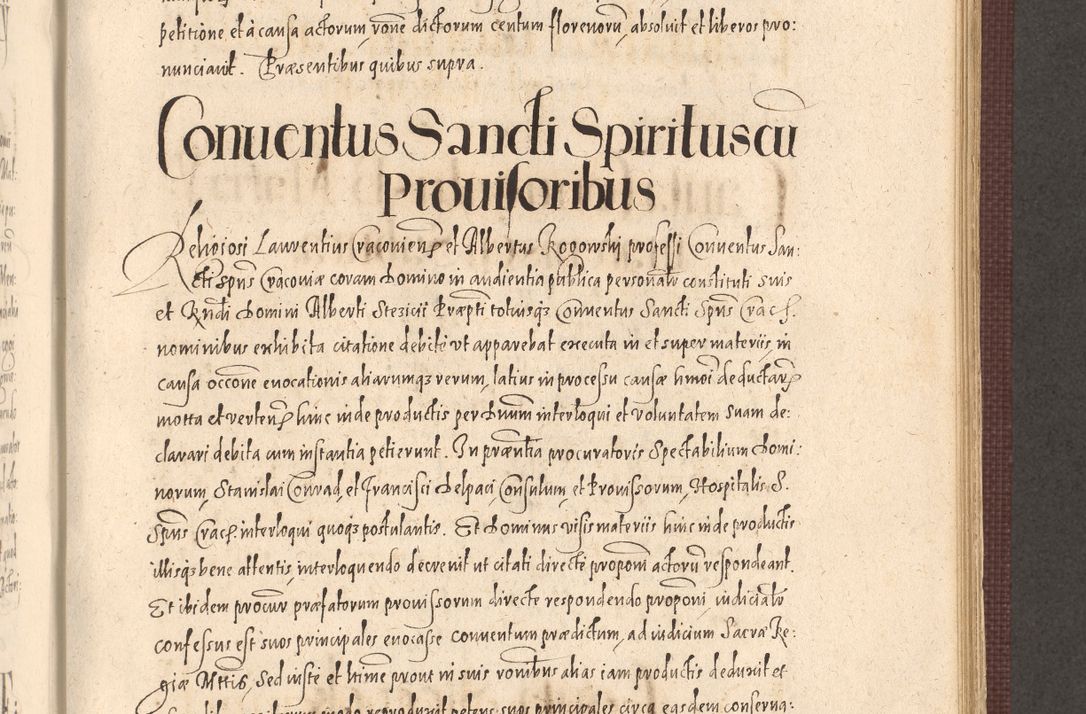 petitione, et à causa actorum, rone dictorum centum florenorũ, absoluit et liberos pro:
nunciauit. Præsentibus quibus supra.
Conuentus Sancti Spiritus cũ
Prouisoribus
Religiosi Laurentius Cracouien et Albertus Rogowski professi Conuentus San:
cti Spũs Cracouiæ coram Domino in audientia publica personalr constituti suis
et Rndi Domini Alberti Stezicii Præpti totiusq3 Conuentus Sancti Spũs Crac.
nominibus exhibita citatione debite ut apparebat executa in et super materiis, in
causa occone euocationis aliarumq3 rerum, latius in processu causæ hmoi deductar
motta et verten hinc inde productis per Dnum interloqui et voluntatem suam de:
clarari debita cum instantia petierunt. In præntia procuratoris Spectabilium Domi:
norum, Stanislai Conrad, et Francisci Delpaci, Consulum, et Prouissorum, Hospitalis S.
Spũs Crac. interloqui quoq3 postulantis. Et Dominus visis materiis hinc inde productis
illisq3 bene attentis, interloquendo decreuit ut citati directè proponi actorũ respondeant.
Et ibidem procur præfatorum prouissorum directe respondendo proponi, iudicialr
confessus est suos principales euocasse conuentum prædictum, ad iudicium Sacræ Re:
giæ Mttis, Sed iuste et ltime prout in suis ronibus alias iam productis deduxit et
reproduxit petens suos principales circa easdem conserua: